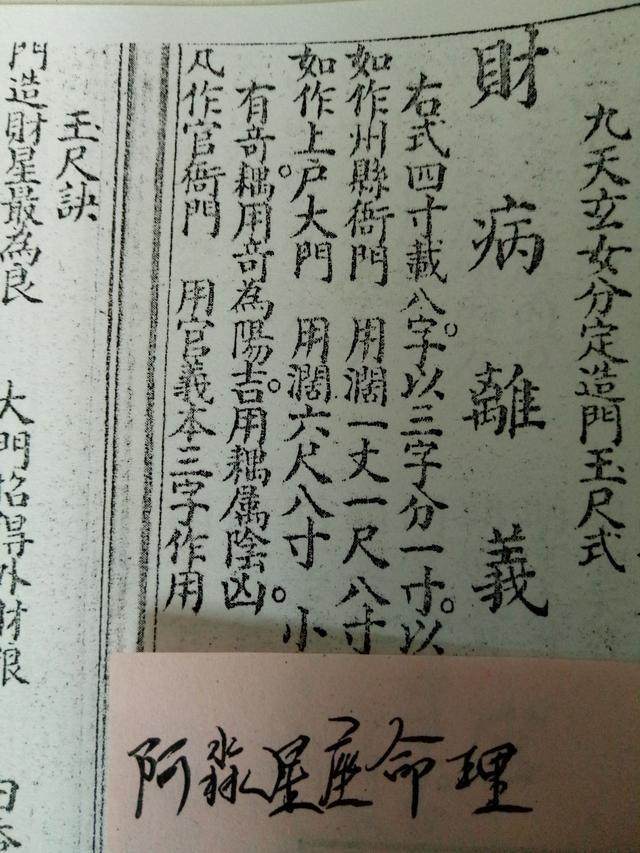 九天玄女分定造門玉尺式
財病離義
右式四寸載八字。以三字分一寸。以
如作州縣衙門 用濶一丈一尺八寸
如作上戶大門 用濶六尺八寸 小
有竒耦用竒為陽吉。用耦属陰凶。
凡作官衙門 用官義本三字作用
玉尺訣
門造財星最為良 大門招得外財
阿淼星座命理